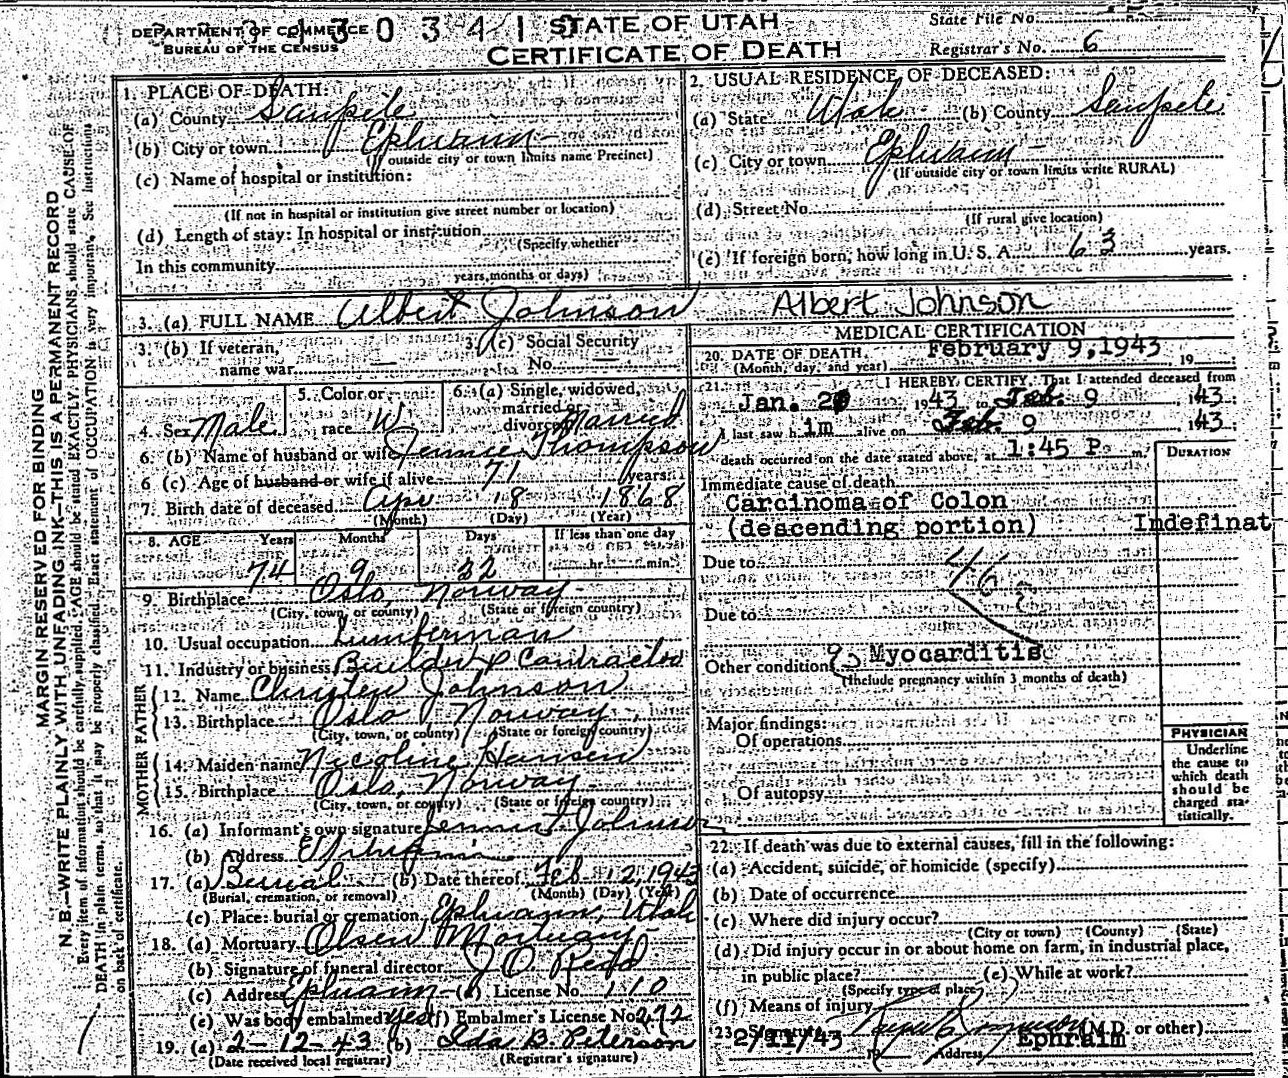 DEPARTMENT OF COMMERCE
BUREAU OF THE CENSUS
STATE OF UTAH
CERTIFICATE OF DEATH
State File No.
Registrar's No. 6
MARGIN RESERVED FOR BINDING
N. B.—WRITE PLAINLY WITH UNFADING INK—THIS IS A PERMANENT RECORD
Every item of information should be carefully supplied. AGE should be stated EXACTLY. PHYSICIANS should state CAUSE OF
DEATH in plain terms, so that it may be properly classified. Exact statement of OCCUPATION is very important. See instructions
on back of certificate.
1. PLACE OF DEATH:
(a) County Sanpete
(b) City or town Ephraim
(If outside city or town limits name Precinct)
(c) Name of hospital or institution:
(If not in hospital or institution give street number or location)
(d) Length of stay: In hospital or institution
(Specify whether
In this community
years, months or days)
2. USUAL RESIDENCE OF DECEASED:
(a) State Utah (b) County Sanpete
(c) City or town Ephraim
(If outside city or town limits write RURAL)
(d) Street No.
(If rural give location)
(e) If foreign born, how long in U. S. A. 63 years.
3. (a) FULL NAME Albert Johnson Albert Johnson
3. (b) If veteran,
name war —
3. (c) Social Security
No. —
4. Sex Male
5. Color or
race W
6. (a) Single, widowed,
married or
divorced Married
6. (b) Name of husband or wife Jennie Thompson
6 (c) Age of husband or wife if alive 71 years
7. Birth date of deceased Apr 18 1868
(Month) (Day) (Year)
8. AGE Years Months Days If less than one day
74 9 22 hr. min.
9. Birthplace Oslo, Norway
(City, town, or county) (State or foreign country)
10. Usual occupation Lumberman
11. Industry or business Builder & Contractor
FATHER
12. Name Johnson
13. Birthplace Oslo, Norway
(City, town, or county) (State or foreign country)
MOTHER
14. Maiden name Nicoline Hansen
15. Birthplace Oslo, Norway
(City, town, or county) (State or foreign country)
16. (a) Informant's own signature Jennie T. Johnson
(b) Address Ephraim
17. (a) Burial (b) Date thereof Feb 12, 1943
(Burial, cremation, or removal) (Month) (Day) (Year)
(c) Place: burial or cremation Ephraim, Utah
18. (a) Mortuary Olsen Mortuary
(b) Signature of funeral director
(c) Address Ephraim (d) License No. 110
(e) Was body embalmed Yes (f) Embalmer's License No. 272
19. (a) 2-12-43 (b) Ida B. Peterson
(Date received local registrar) (Registrar's signature)
MEDICAL CERTIFICATION
20. DATE OF DEATH February 9, 1943 19
(Month, day, and year)
21. I HEREBY CERTIFY, That I attended deceased from
Jan. 1943 to Feb. 9 1943
I last saw him alive on Feb. 9 1943
death occurred on the date stated above, at 1:45 P. m.
DURATION
Immediate cause of death
Carcinoma of Colon
(descending portion) Indefinat
Due to
46
Due to
Other condition Myocarditis
(Include pregnancy within 3 months of death)
Major findings:
Of operations
Of autopsy
PHYSICIAN
Underline
the cause to
which death
should be
charged sta-
tistically.
22. If death was due to external causes, fill in the following:
(a) Accident, suicide, or homicide (specify)
(b) Date of occurrence
(c) Where did injury occur?
(City or town) (County) (State)
(d) Did injury occur in or about home on farm, in industrial place,
in public place? (e) While at work?
(Specify type of place)
(f) Means of injury
23. Signature (M.D. or other)
2/11/43 19 Address Ephraim